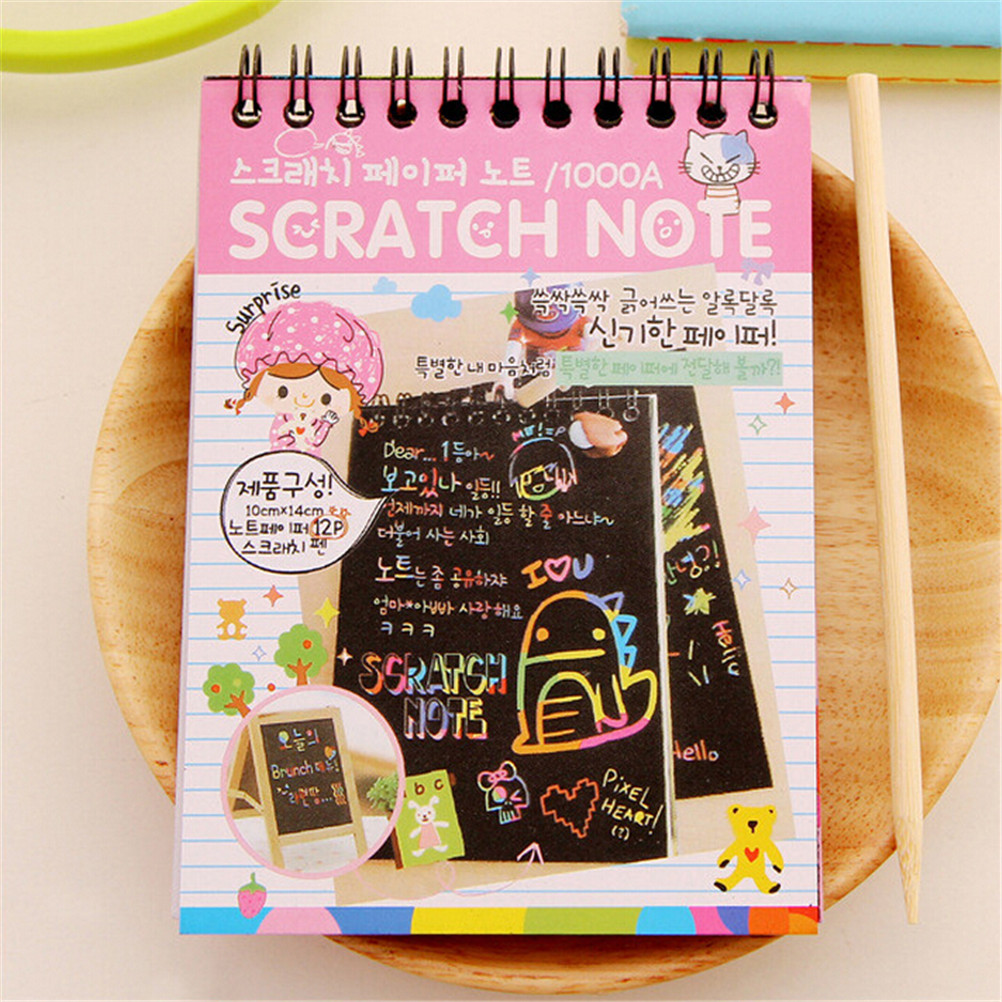 스크래치 페이퍼 노트 /1000A
SCRATCH NOTE
Surprise
쓱싹쓱싹 긁어쓰는 알록달록
신기한 페이퍼!
특별한 내 마음처럼! 특별한 페이퍼에 전달해 볼까?!
제품구성!
10cm×14cm
노트페이퍼 12P
스크래치 펜
Dear... 1등아~
보고있나 일등!!
언제까지 네가 일등 할 줄 아느냐~
더불어 사는 사회
노트는 좀 공유하쟈
엄마*아빠 사랑해요
ㅋ ㅋ ㅋ
I ♡ U
안녕?!
Hello
SCRATCH
NOTE
Hello
오늘의
Brunch 메뉴!
계란빵...
bc
PiXEL
HEART!
(?)